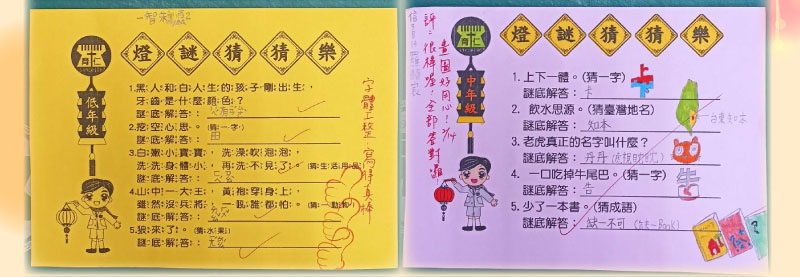 燈謎猜猜樂
低年級
1.黑人和白人生的孩子剛出生，
牙齒是什麼顏色？
謎底解答：
2.挖空心思。(猜一字)
謎底解答：田
3.白嫩小寶寶，洗澡吹泡泡，
洗洗身體小，再洗不見了。(猜生活用品)
謎底解答：
4.山中一大王，黃袍穿身上，
雖然沒兵將，一吼誰都怕。(猜一動物)
謎底解答：
5.狼來了。(猜水果)
謎底解答：
字體工整
寫得真棒
燈謎猜猜樂
中年級
1.上下一體。(猜一字)
謎底解答：卡
2.飲水思源。(猜臺灣地名)
謎底解答：知本
台東知本
3.老虎真正的名字叫什麼？
謎底解答：丹丹
4.一口吃掉牛尾巴。(猜一字)
謎底解答：告
5.少了一本書。(猜成語)
謎底解答：缺一不可
評：很棒喔！全部答對囉！
畫圖好同心！